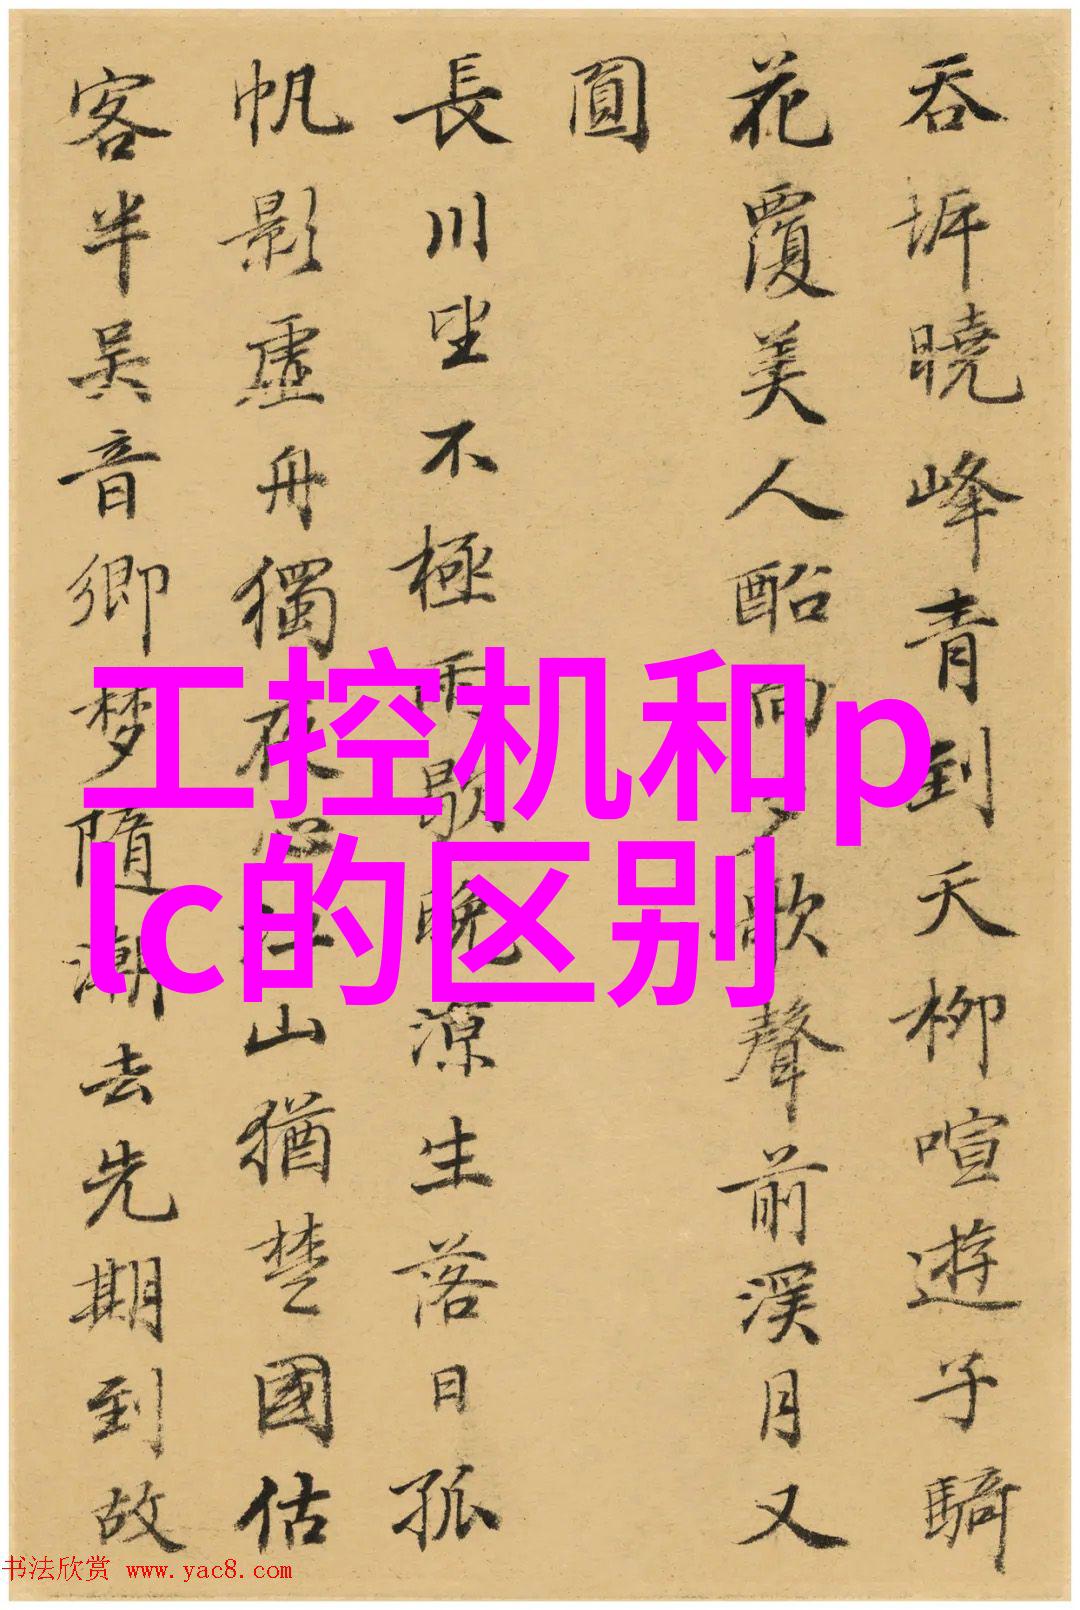 吞坼曉峰青到天柳喧遊子騎
花覆美人酩向夕歌聲前溪月又
圓
長川坐不極雨歇晚凉生落日孤
帆影虛舟獨夜心江山猶楚國估
客半吳音鄉梦隨潮去先期到故
工控机和p
lc的区别
书法欣赏 www.yac8.com